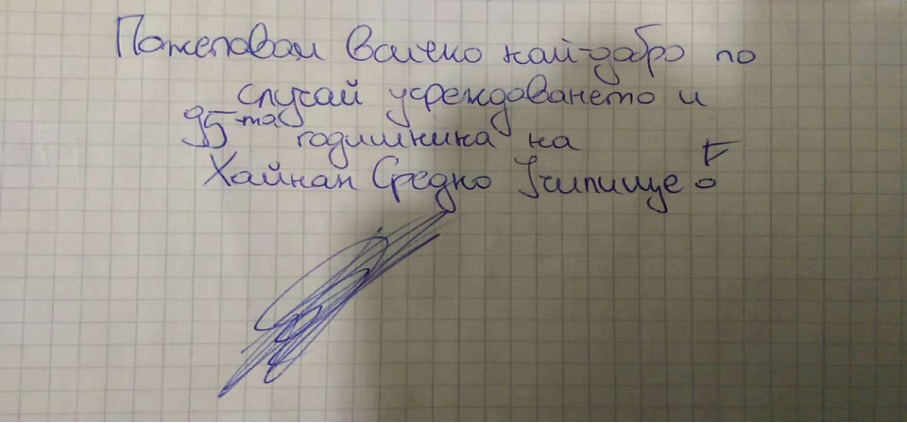 Пожелавам всичко най-добро по
случай учреждоването и
95-та годишнина на
Хайнан Средно Училище!